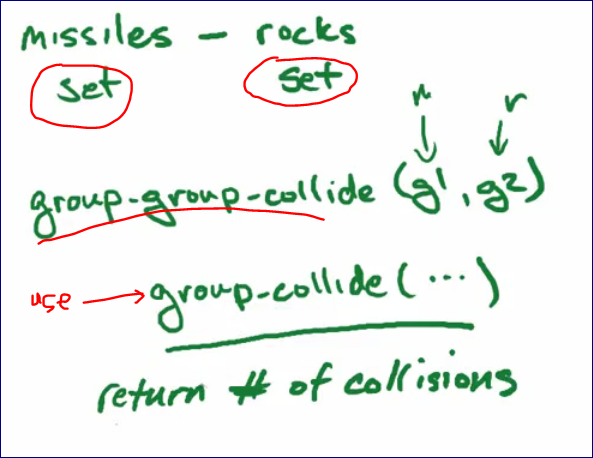 missiles – rocks
set set
m r
group-group-collide (g1, g2)
use → group-collide (...)
return # of collisions